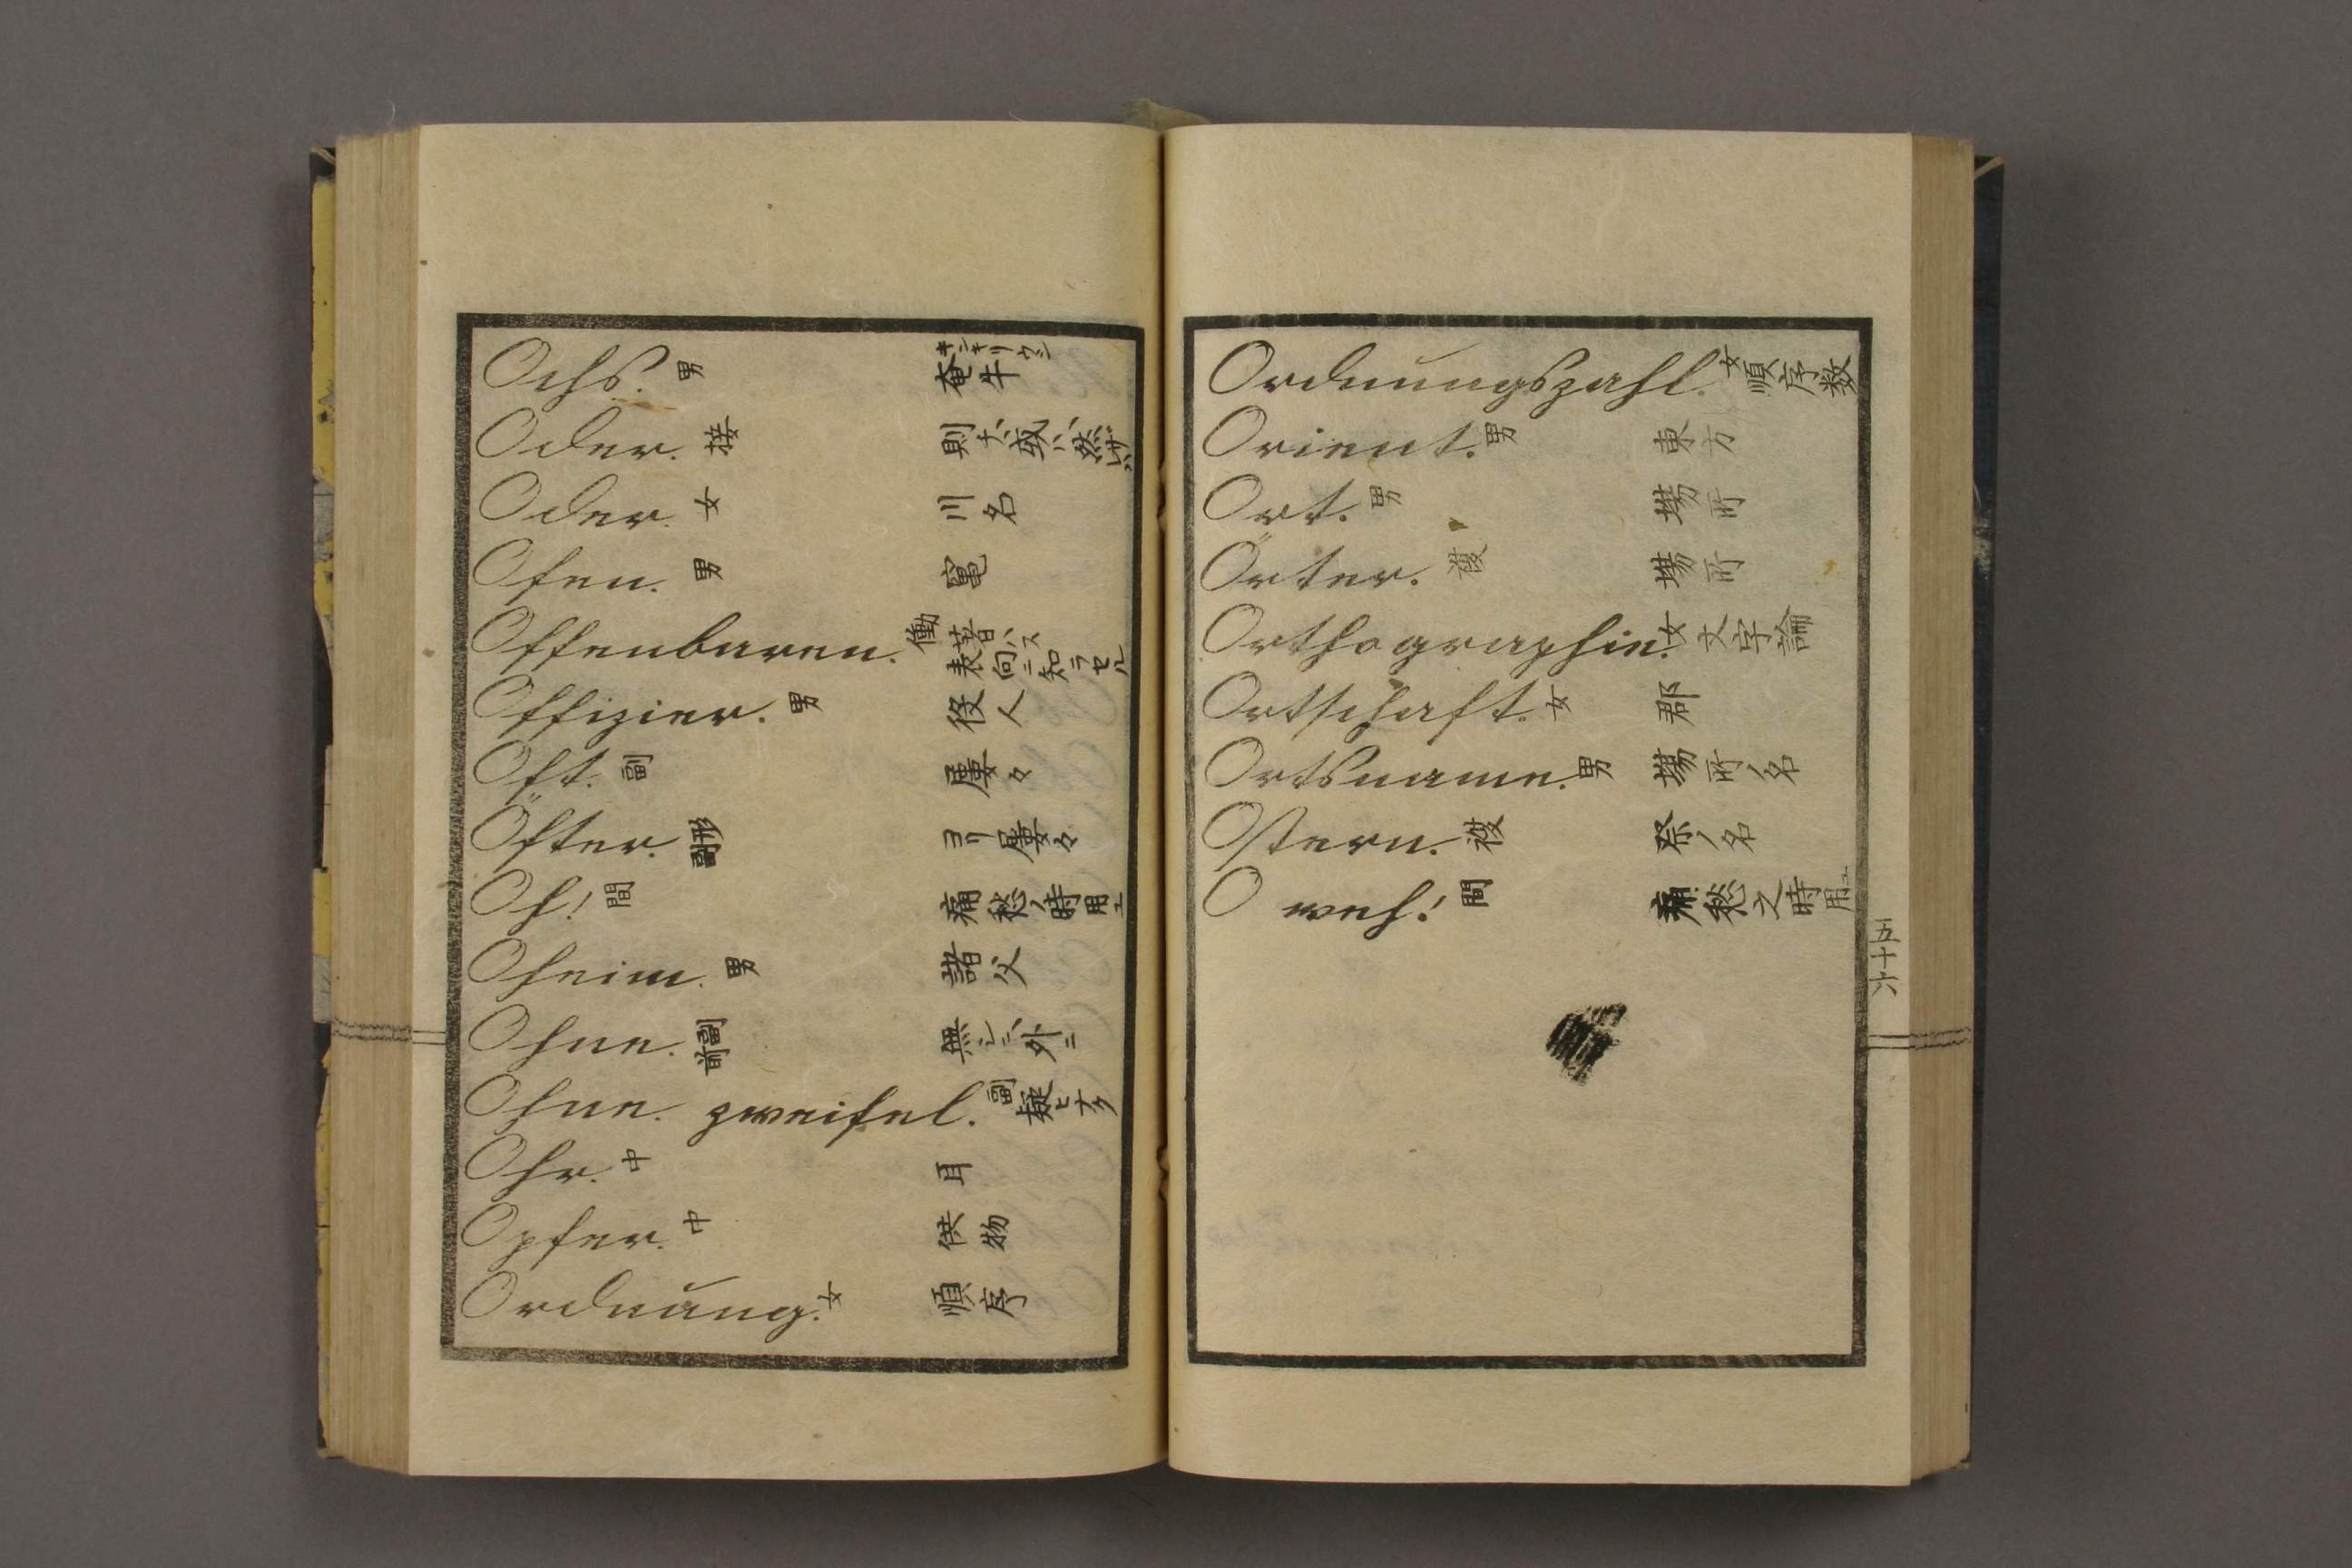 Ochs. 男 奄牛 キンキリウシ
Oder. 接 則ナ 或ハ 然ザレバ
Oder. 女 川名
Ofen. 男 竃
Offenbaren. 働 著ハス 表向ニ知ラセル
Offizier. 男 役人
Oft. 副 屢々
Öfter. 副形 ヨリ屢々
Oh! 間 痛愁ノ時用ユ
Oheim. 男 諸父
Ohne. 前副 無シニ 外ニ
Ohne. zweifel. 副 疑ヒナク
Ohr. 中 耳
Opfer. 中 供物
Ordnung. 女 順序
Ordnungszahl. 女 順序数
Orient. 男 東方
Ort. 男 場所
Örter. 複 場所
Orthographie. 女 文字論
Ortschaft. 女 郡
Ortsname. 男 場所ノ名
Ostern. 複 祭ノ名
O weh! 間 痛愁之時用ユ
五十六